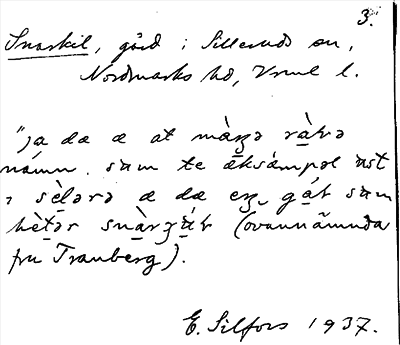 3.
Snarkil, gård i Silleruds sn,
Nordmarks hd, Vrml l.
"ja dæ æ at màŋə ràkə
námn. sum te æksámpəl ust
i sèḷərə æ dæ eŋ gát sum
hètər snàrʒúk (ovannämnda
fru Tranberg).
E. Silfors 1937.